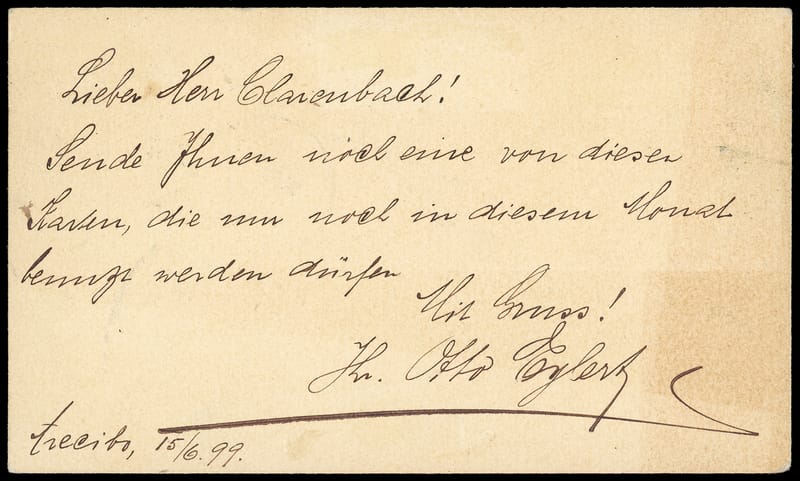 Lieber Herr Clarenbach!
Sende Ihnen noch eine von diesen
Karten, die nur noch in diesem Monat
benutzt werden dürfen
Mit Gruss!
Otto Eylert
Arecibo, 15/6. 99.